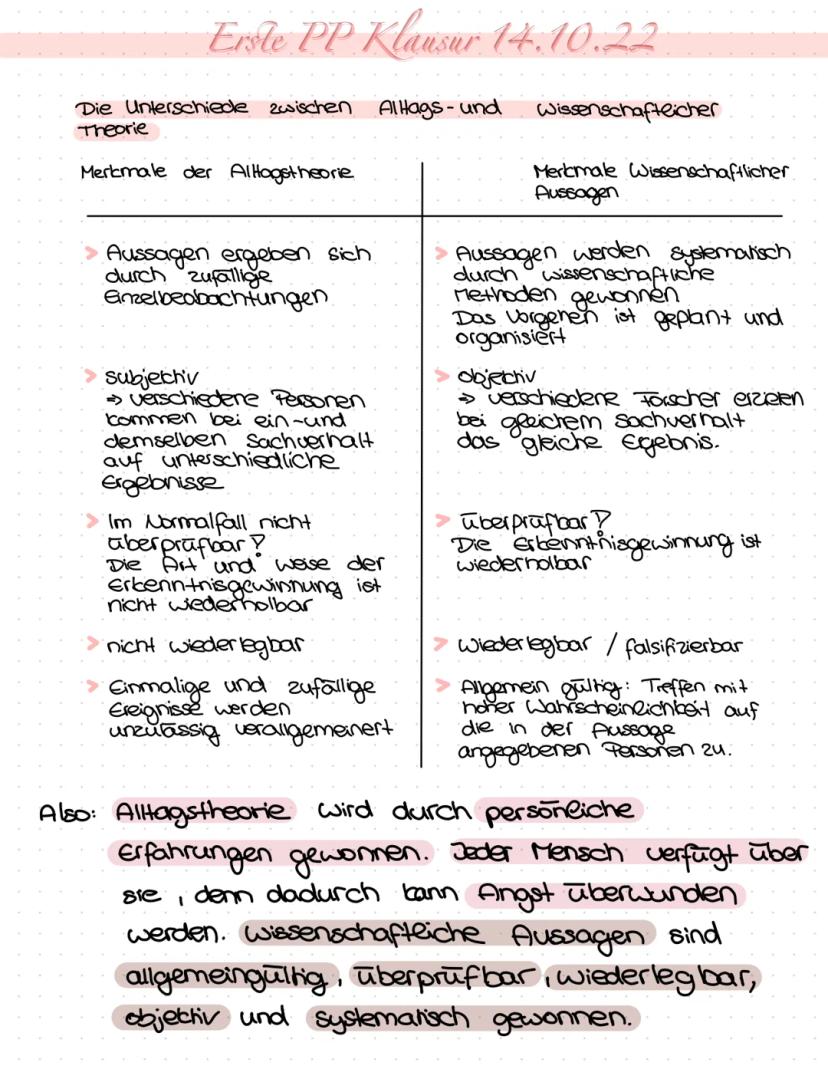 Erste PP Klausur 14.10.22
Die Unterschiede zwischen Alltags- und Wissenschaftlicher
Theorie
Merkmale der Alltagstheorie
Merkmale Wissenschaftlicher
Aussagen
> Aussagen ergeben sich
durch zufällige
Einzelbeobachtungen
> Aussagen werden systematisch
durch wissenschaftliche
Methoden gewonnen
Das Vorgehen ist geplant und
organisiert
> subjektiv
⇒ verschiedene Personen
kommen bei ein-und
demselben Sachverhalt
auf unterschiedliche
Ergebnisse
> objektiv
⇒ verschiedene Forscher erzielen
bei gleichem Sachverhalt
das gleiche Egebnis.
> Im Normalfall nicht
überprüfbar?
Die Art und weise der
Erkenntnisgewinnung ist
nicht wiederholbar
> überprüfbar?
Die Erkenntnisgewinnung ist
wiederholbar
> nicht wiederlegbar
> wiederlegbar / falsifizierbar
> Einmalige und zufällige
Ereignisse werden
unzulässig verallgemeinert
> Allgemein gültig: Treffen mit
hoher Wahrscheinlichkeit auf
die in der Aussage
angegebenen Personen zu.
Also: Alltagstheorie wird durch persönliche
Erfahrungen gewonnen. Jeder Mensch verfügt über
sie, denn dadurch kann Angst überwunden
werden. Wissenschaftliche Aussagen sind
allgemeingültig, überprüfbar, wiederlegbar,
objektiv und systematisch gewonnen.